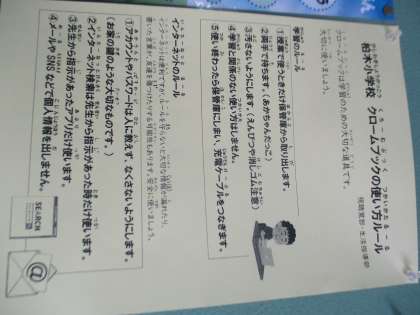 柏木小学校 クロームブックの使い方ルール
視聴覚部・生活指導部
クロームブックは学習のための大切な道具です。
大切に使いましょう。
学習のルール
①授業で使うときだけ保管庫から取り出します。
②両手で持ちます。(あかちゃんだっこ)
③汚さないようにします。(えんぴつや消しゴム注意)
④学習と関係のない使い方はしません。
⑤使い終わったら保管庫にしまい、充電ケーブルをつなぎます。
インターネットのルール
インターネットは便利ですが、ルールを守らないと大切な情報が漏れたり、
違った言葉が、友達を傷つけたりする可能性もあります。安全に使いましょう。
①アカウントやパスワードは人に教えず、なくさないようにします。
(お家の鍵のような大切なものです。)
②インターネット検索は先生から指示があった時だけ使います。
③先生から指示があったアプリだけ使います。
④メールやSNSなどで個人情報を出しません。
SEARCH